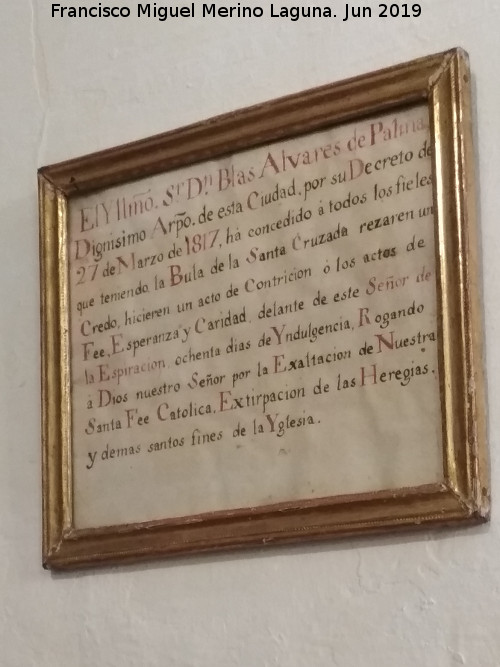 Francisco Miguel Merino Laguna. Jun 2019
El Yllmo. Sr. Dn. Blas Alvares de Palma,
Dignisimo Arpo. de esta Ciudad, por su Decreto de
27 de Marzo de 1817, ha concedido á todos los fieles
que teniendo la Bula de la Santa Cruzada rezaren un
Credo, hicieren un acto de Contricion ó los actos de
Fee, Esperanza y Caridad, delante de este Señor de
la Espiracion, ochenta dias de Yndulgencia, Rogando
á Dios nuestro Señor por la Exaltacion de Nuestra
Santa Fee Catolica, Extirpacion de las Heregias,
y demas santos fines de la Yglesia.